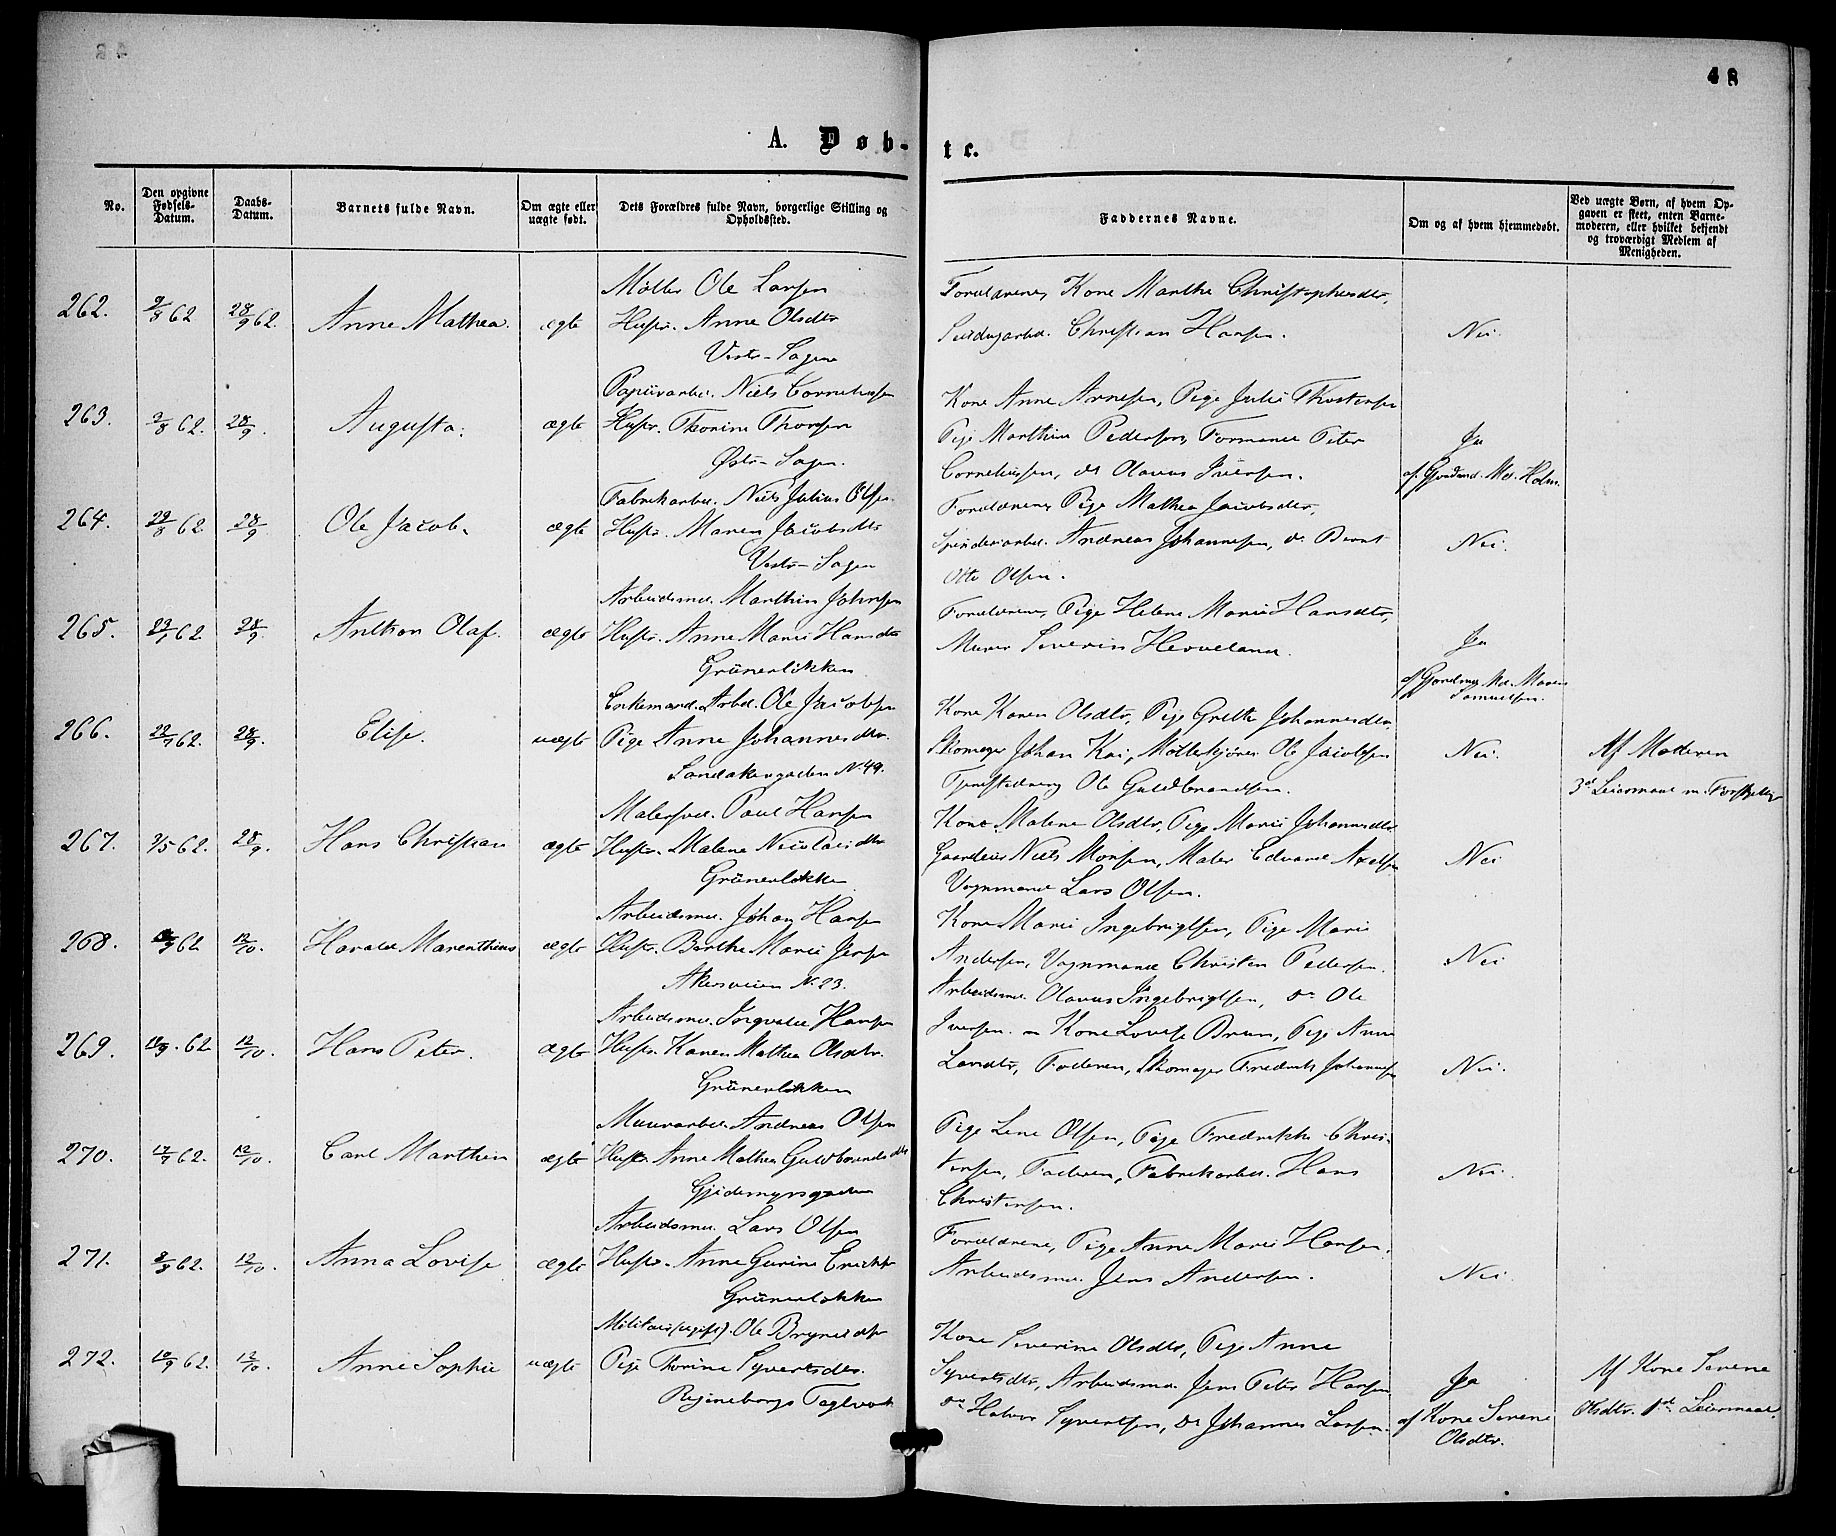 48
A. Døb-
te.
No.
Den opgivne Fødsels-Datum.
Daabs-Datum.
Barnets fulde Navn.
Om ægte eller uægte født.
Dets Forældres fulde Navn, borgerlige Stilling og Opholdssted.
Faddernes Navne.
Om og af hvem hjemmedøbt.
Ved uægte Børn, af hvem Opgaven er skeet, enten Barnemoderen, eller hvilket bekjendt og troværdigt Medlem af Menigheden.
262. 9/8 62 28/9 62. Anne Mathea. ægte
Møller Ole Larsen
Hustr. Anne Olsdtr
Vestr-Sagene
Forældrene, Kone Marthe Christophersdtr,
Christian Hansen.
Nei.
263. 3/8 62. 28/9. Augusta. ægte
Papirarbei. Niels Corneliussen
Hustr. Thorine Thorsen
Østr-Sagen.
Kone Anne Arnesen, Pige Julie Thostensen
Pige Marthine Pedersen, Formand Peter
Corneliussen, do Olavus Iversen.
Ja
af Gjordmd. Md. Holm.
264. 29/8 62. 28/9 Ole Jacob. ægte
Fabrikarbei. Niels Julius Olsen.
Hustr. Maren Jacobsdtr
Vestr-Sagen
Forældrene, Pige Mathea Jacobsdtr,
Spinderiarbei. Andreas Johannesen, do Bernt
Otto Olsen.
Nei.
265. 62. 28/9. Anthon Olaf. ægte
Arbeidsmd. Marthin Johnsen
Hustr. Anne Marie Hansdtr
Grünerløkken
Forældrene, Pige Helene Marie Hansdtr,
Murer Severin Hesveland.
Ja
af Gjordmd. Md. Maren
Samuelsen.
266. 22/7 62. 28/9. Elise. uægte
Enkemand. Arbd. Ole Jacobsen
Pige Anne Johannesdtr.
Sandakergaden N.49.
Kone Karen Olsdtr, Pige Grethe Johannesdtr
Skomager Johan Kai, Møllekjører Ole Jacobsen
Tjenestedreng Ole Guldbrandsen.
Nei.
Af Moderen
3die Leiermaal m. Forskjellig
267. 7/5 62. 28/9. Hans Christian ægte
Malersvd. Paul Hansen
Hustr. Malene Nicolaisdtr
Grünerløkken
Kone Malene Olsdtr, Pige Marie Johannesdtr
Gaardeier Niels Monsen, Maler Edvard Axelsen
Vognmand Lars Olsen.
Nei
268. 62 12/10. Harald Marenthius ægte
Arbeidsmd. Johan Hansen
Hustr. Berthe Marie Jensen
Akersveien N.23.
Kone Marie Ingebrigtsen, Pige Marie
Andersen, Vognmand Christen Pedersen.
Arbeidsmd. Olavus Ingebrigtsen, do Ole
Iversen.
Nei
269. 62 12/10. Hans Peter. ægte
Arbeidsmd. Ingvald Hansen
Hustr. Karen Mathea Olsdtr.
Grünerløkken
Kone Lovise Brun, Pige Anne
Larsdtr, Faderen, Skomager Fredrik Johannesen
Nei.
270. 17/7 62. 12/10. Carl Marthin ægte
Murerarbei. Andreas Olsen
Hustr. Anne Mathea Guldbrandsdtr
Gjetemyrsgaden
Pige Lene Olsen, Pige Fredrikke Chris-
tensen, Faderen, Fabrikarbei. Hans
Christensen.
Nei.
271. 8/9 62. 12/10. Anna Lovise ægte
Arbeidsmd. Lars Olsen
Hustr. Anne Gurine
Grünerløkken
Forældrene, Pige Anne Marie Hansen.
Arbeidsmd. Jens Andersen.
Nei.
272. 10/9 62. 12/10. Anne Sophie uægte
Militair (ugift). Ole
Pige Thorine Syvertsdtr.
Regineborgs Teglverk
Kone Severine Olsdtr, Pige Anne
Syvertsdtr, Arbeidsmd. Jens Peter Hansen
do Halvor Syvertsen, do Johannes Larsen.
Ja
af Kone Serene
Olsdtr.
Af Kone Serene
Olsdtr. 1ste Leiermaal.